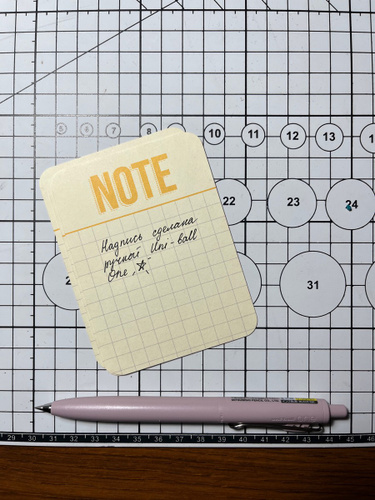 5 6 7 8 10 11 12 13
NOTE
22 23 24
Надпись сделана
ручкой Uni-ball
One
31
29 30 31 32 33 34 35 36 37 38 39 40 41 42 43 44 45 46